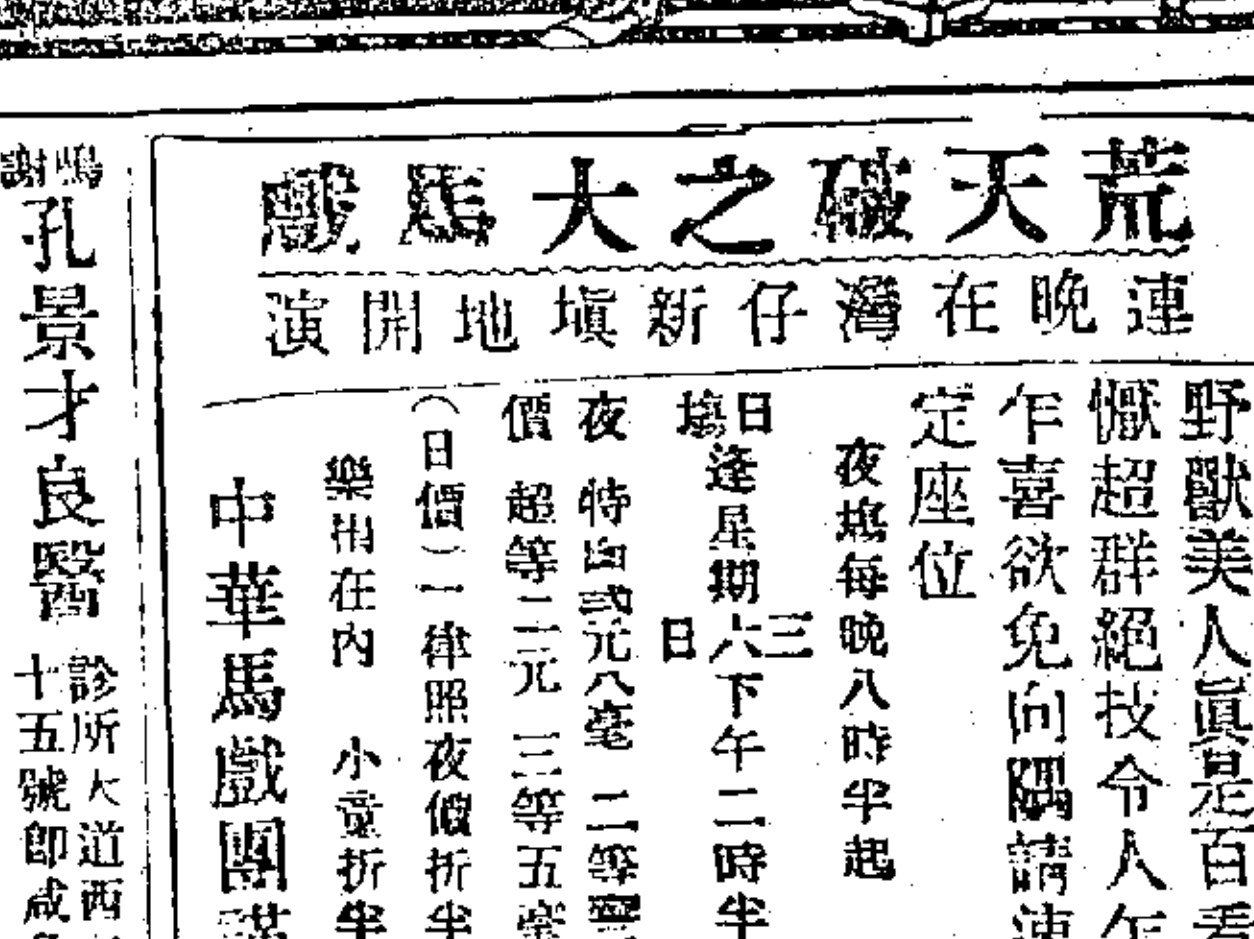 荒天破之大馬戲
連晚在灣仔新塡地開演
野獸美人眞是百看
懨超群絕技令人乍
乍喜欲免向隅請速
定座位
夜塲每晚八時半起
日塲逢星期三六日下午二時半
夜價
特由弍元八毫 二等壹
超等二元 三等五毫
(日價)一律照夜價折半
樂捐在內 小童折半
中華馬戲團謹
鳴謝
孔景才良醫
診所大道西
十五號即咸